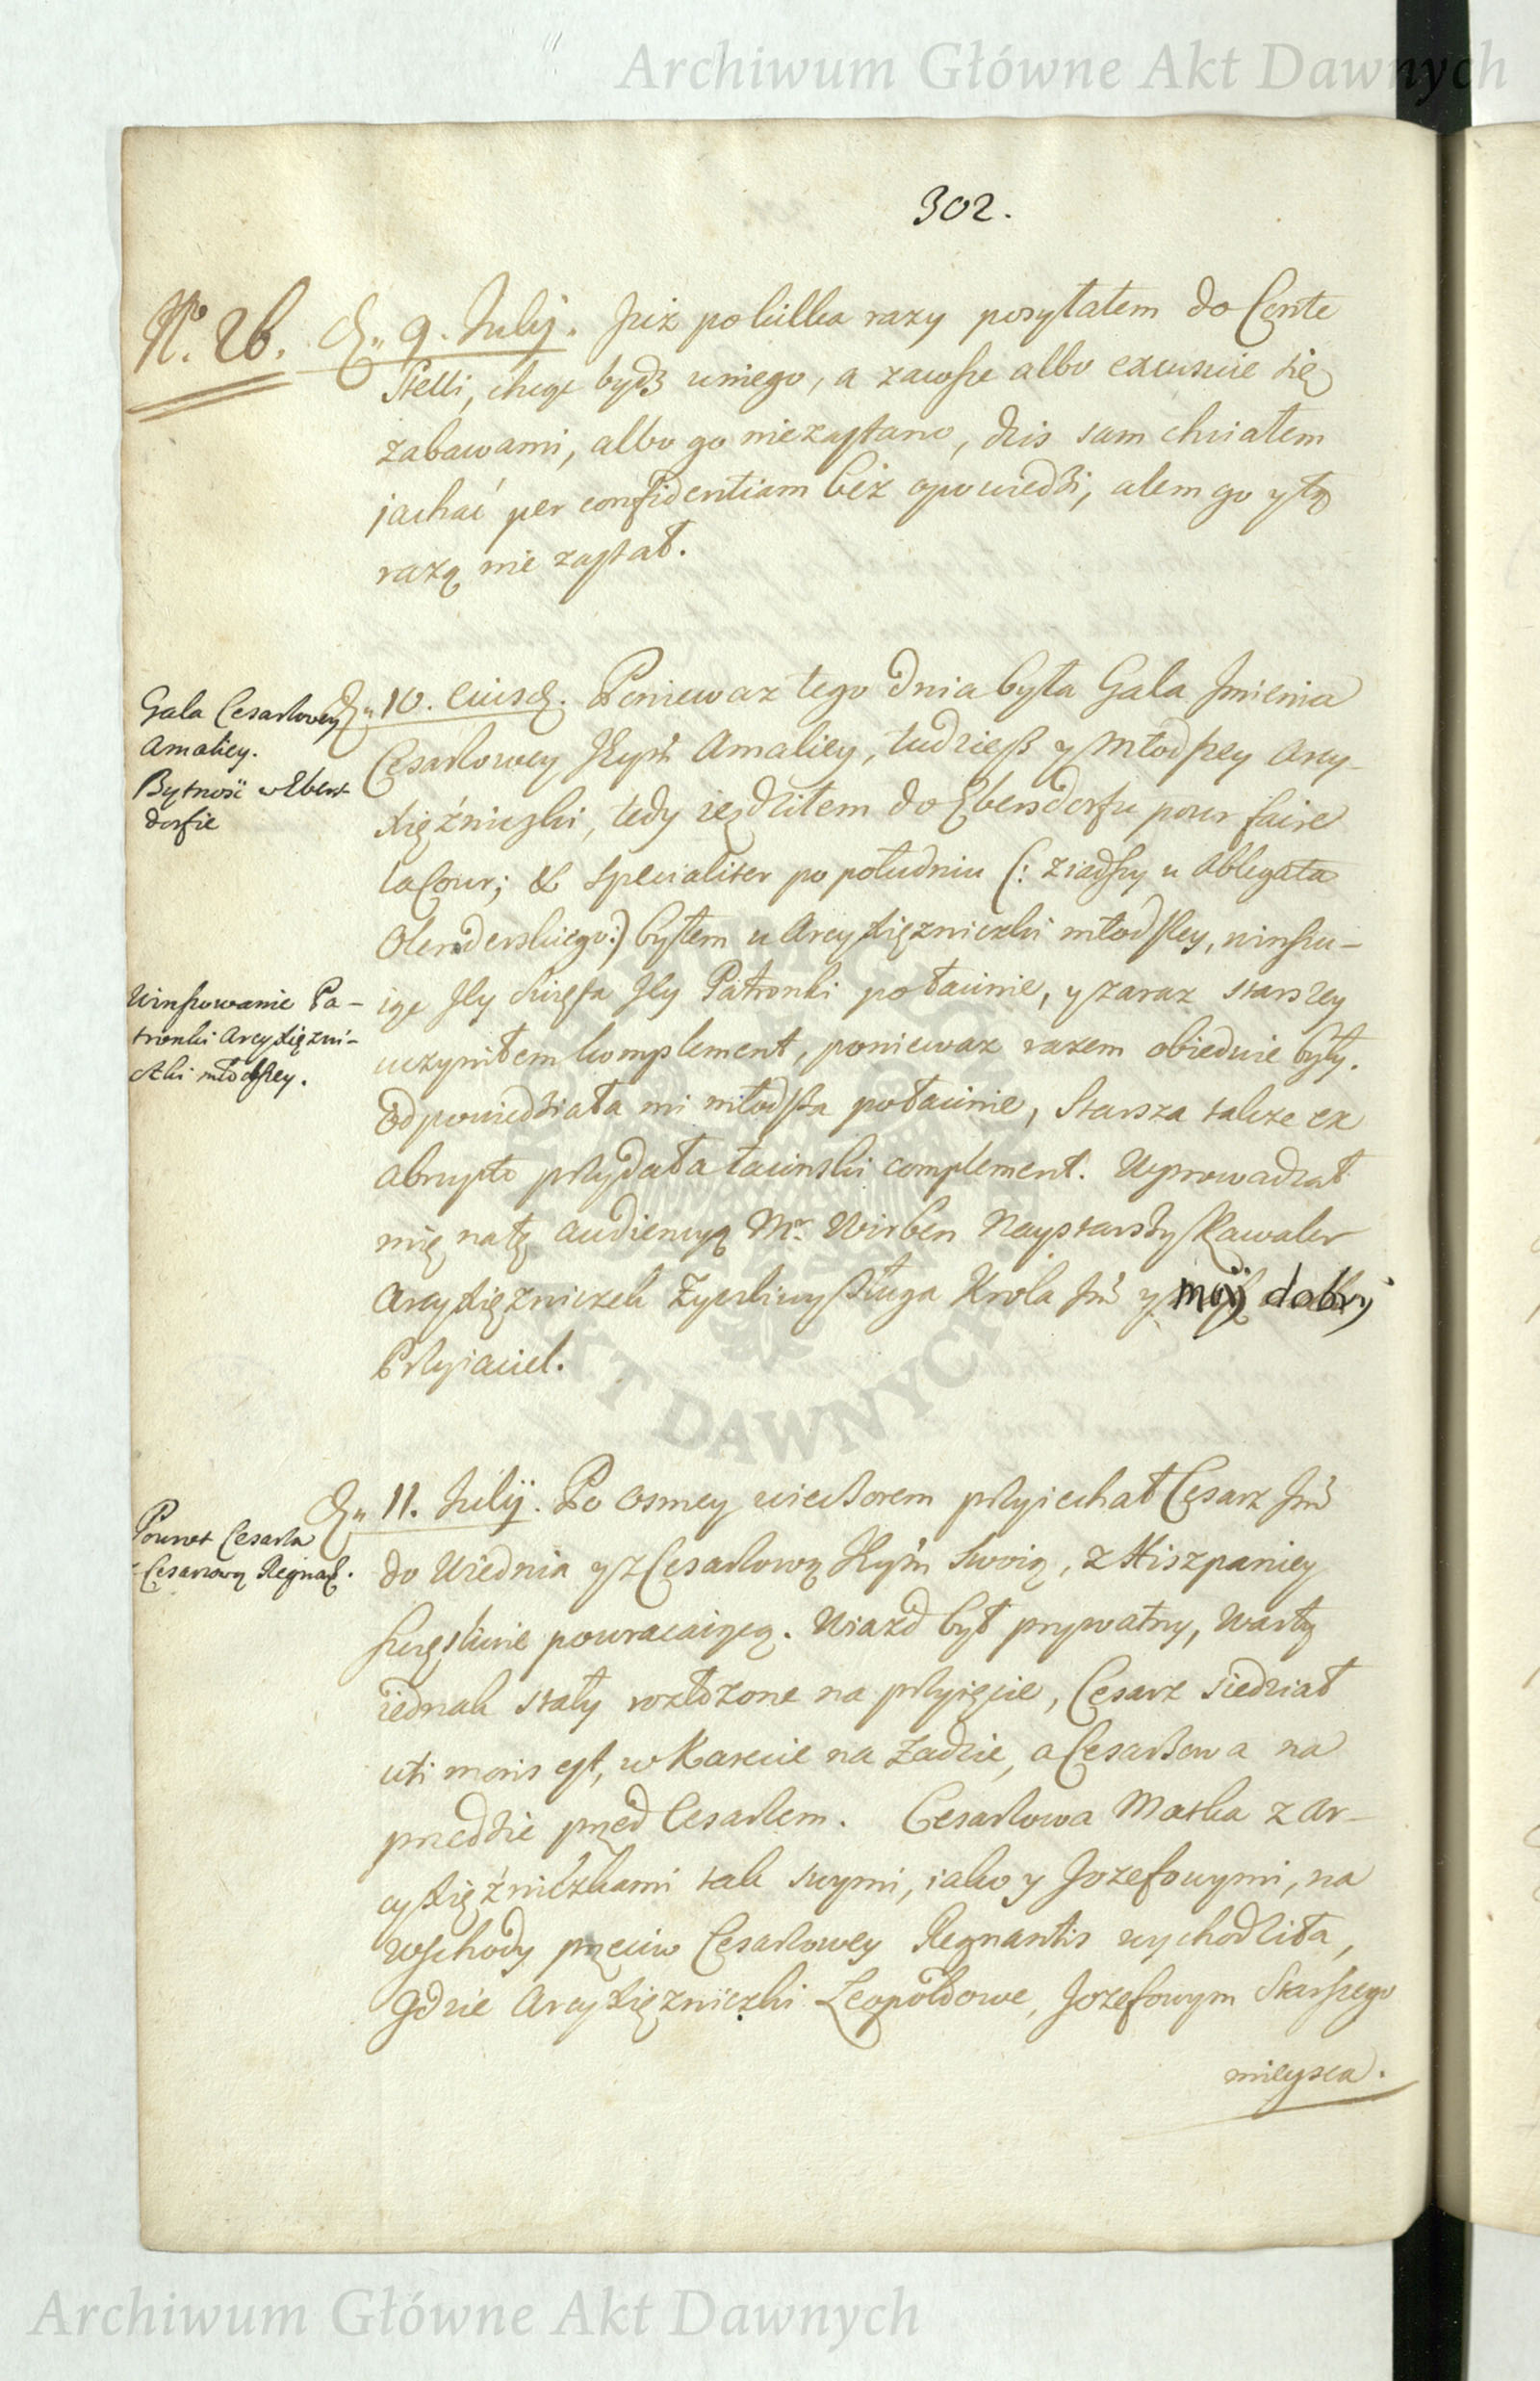 Archiwum Główne Akt Dawnych
302.
No. 26. D. 9. Julij. Już po kilka razy posyłałem do Conte
Stelli, chcąc bydź u niego, a zawsze albo excusuie się
zabawami, albo go nie zastano, dzis sam chciałem
jachać per confidentiam bez opowiedzi, alem go y tą
razą nie zastał.
Gala Cesarzowey
Amaliey.
Bytność w Ebers
dorfie
D. 10. eiusd. Ponieważ tego dnia była Gala Jmienia
Cesarzowey Amaliey, tudziesz y młodszey Arcy-
xiężniczki, tedy iezdziłem do Ebersdorfu pour faire
la Cour; & specialiter po południu (: ziadszy u Ablegata
Olenderskiego:) byłem u Arcyxięzniczki młodszey, winszu-
iąc Jey Swięta Jey Patronki po łacinie, y zaraz starszey
uczyniłem komplement, ponieważ razem obiedwie były.
Odpowiedziała mi młodsza po łacinie, Starsza także ex
abrupto przydała łacinski complement. Wprowadzał
mię na tę audiencyą Mr. Wirben Naystarszy Kawaler
Arcyxięzniczek Zyczliwy Sługa Krola Jmć y móy dobry
Przyiaciel.
Winszowanie Pa-
tronki Arcyxięzni-
czki młodszey.
Powrot Cesarza
z Cesarzową Regnand.
D. 11. Julij. Po osmey wieczorem przyiechał Cesarz Jmć
do Wiednia y z Cesarzową Swoią, z Hiszpaniey
szczęsliwie powracaiącą. Wiazd był prywatny, Warty
iednak stały rozłożone na przyięcie, Cesarz siedział
uti moris est, w Karecie na Zadzie, a Cesarzowa na
przedzie przed Cesarzem. Cesarzowa Matka z Ar-
cyxiężniczkami tak swymi, iako y Jozefowymi, na
Wschody przeciw Cesarzowey Regnantis wychodziła,
Gdzie Arcyxięzniczki Leopoldowe, Jozefowym Starszego
mieysca.
Archiwum Główne Akt Dawnych